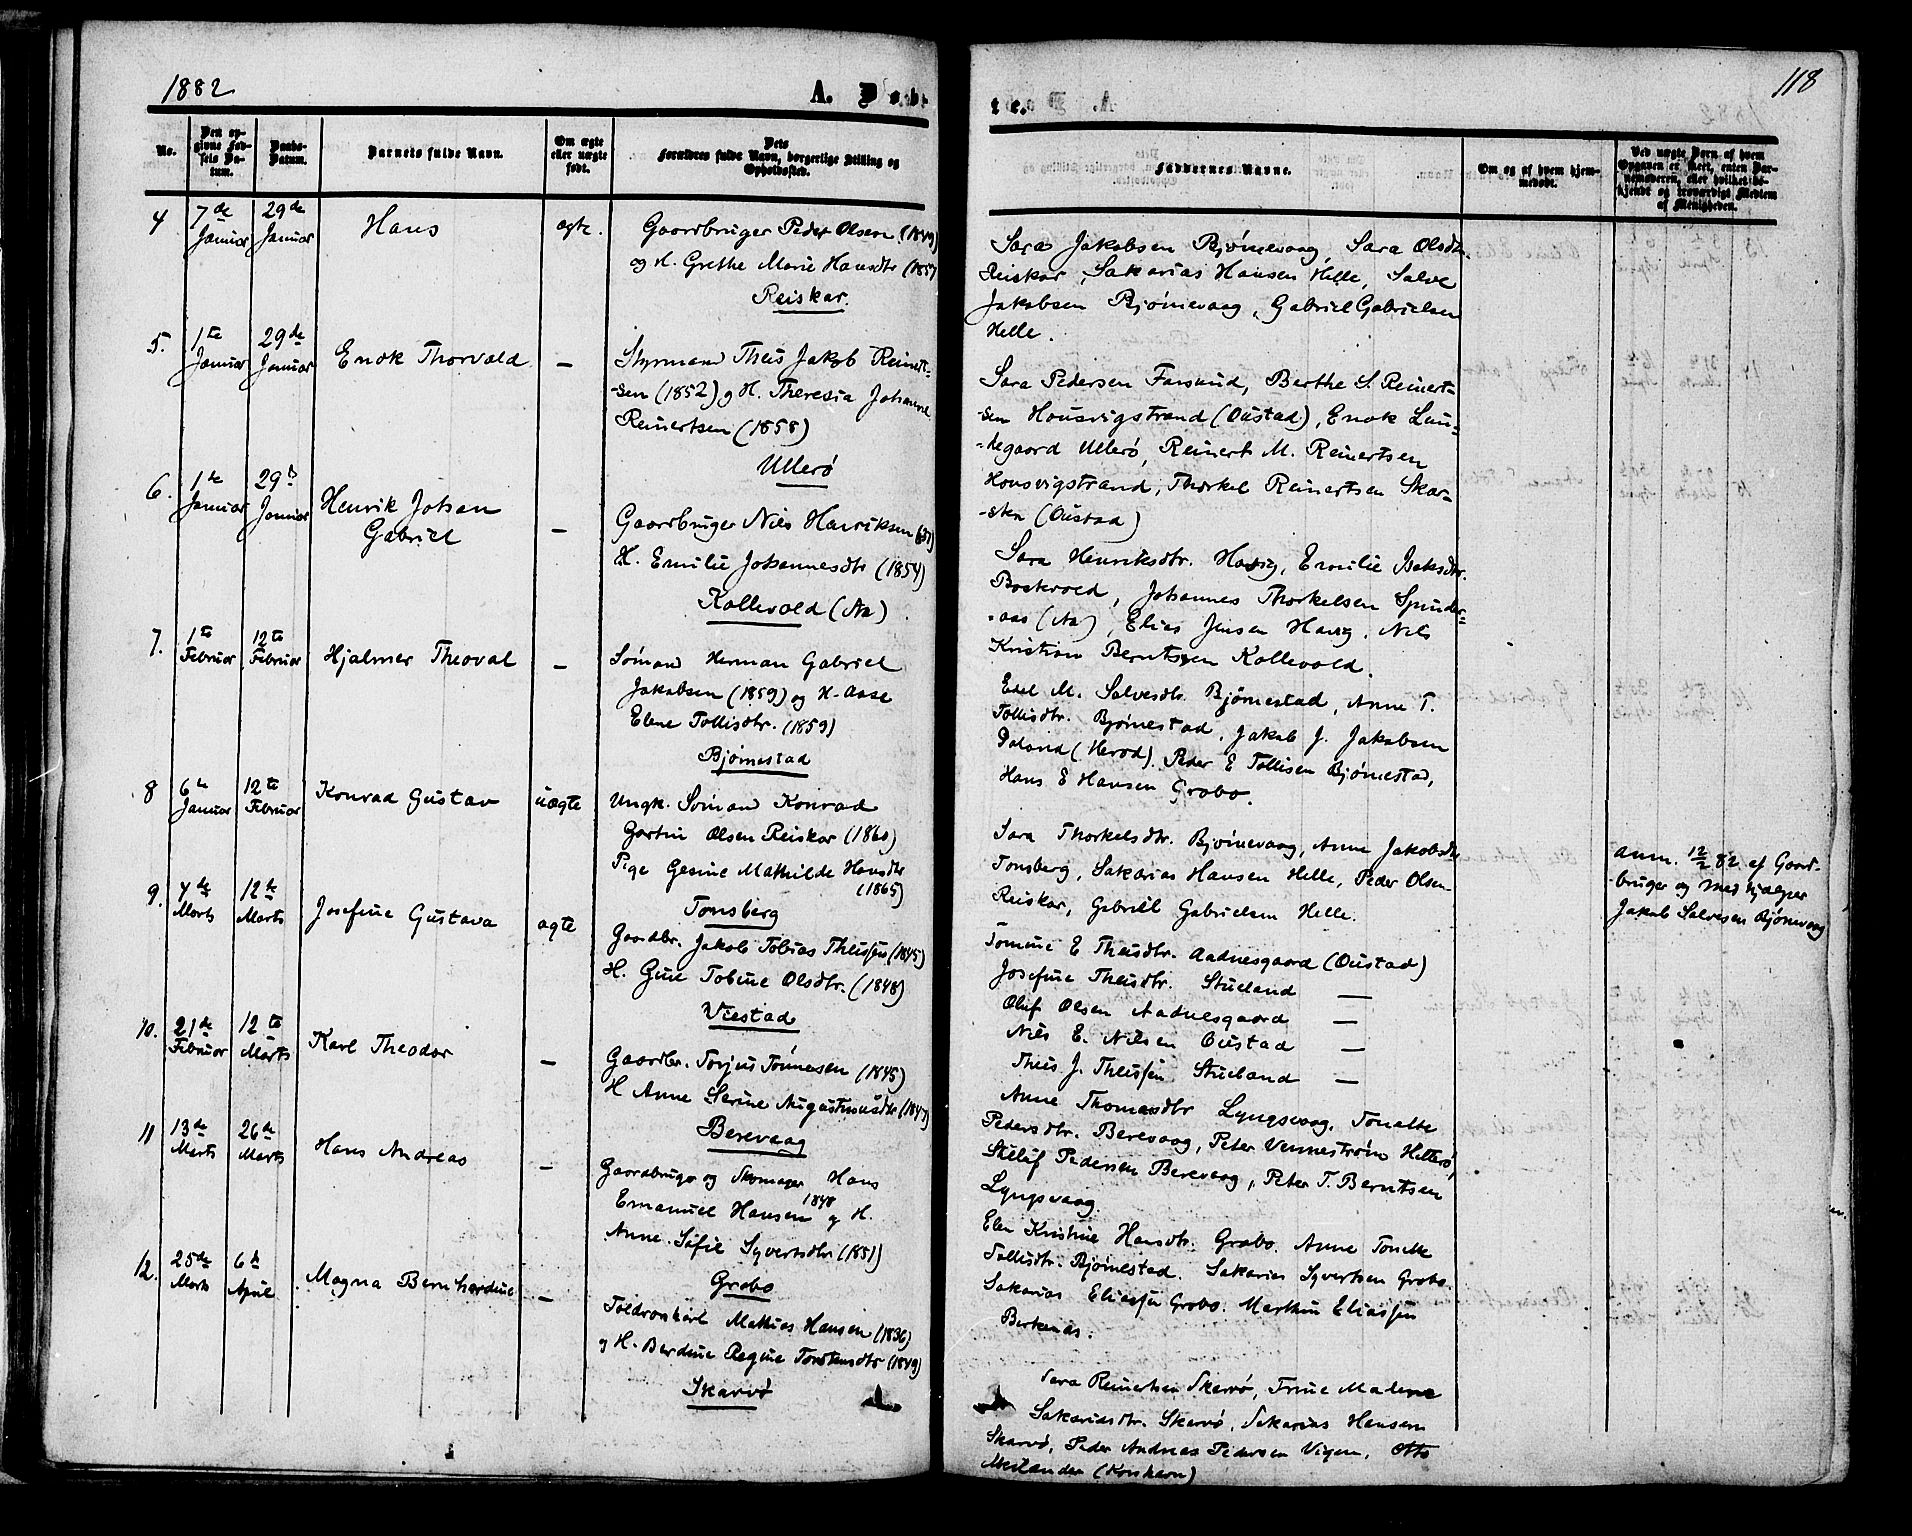 1882
A. Døbte.
118
No.
Den opgivne Fødsels Datum.
Daabs-Datum.
Barnets fulde Navn.
Om ægte eller uægte født.
Dets Forældres fulde Navn, borgerlige Stilling og Opholdssted.
Faddernes Navne.
Om og af hvem hjemmedøbt.
Ved uægte Børn af hvem Opgaven er skert, enten Barnemoderen, eller hvilket bekjendt og troværdigt Medlem af Menigheden.
4
7de Januar
29de Januar
Hans
ægte.
Gaardbruger Peder Olsen (1849)
og H. Grethe Marie Hansdtr (1857
Reiskar.
Sara Jakobsen Bjørnevaag, Sara Olsdtr.
Reiskar, Sakarias Hansen Helle, Salve
Jakobsen Bjørnevaag, Gabriel Gabrielsen
Helle.
5.
1te Januar
29de Januar
Enok Thorvald
—
Styrmand Theis Jakob Reinert-
-sen (1852) og H. Theresia Johanne
Reinertsen (1858)
Ullerø
Sara Pedersen Farsund, Berthe S. Reinert-
-sen Housvigstrand (Oustad), Enok Lun-
-degaard Ullerø, Reinert M. Reinertsen
Housvigstrand, Thorkel Reinertsen Skar-
-sten (Oustad)
6.
1te Januar
29d Januar
Henrik Johan
Gabriel
—
Gaardbruger Nils Henriksen (57)
H. Emilie Johannesdtr (1854)
Kollevold (Aa)
Sara Henriksdtr. Havig, Emilie Isaksdtr.
Brekvold, Johannes Thorkelsen Spinder-
-aas (Aa), Elias Jensen Havig, Nils
Kristian Berntsen Kollevold.
7.
1te Februar
12te Februar
Hjalmer Theoval
—
Sømand Herman Gabriel
Jakobsen (1859) og H. Aase
Elene Tollisdtr. (1859)
Bjørnestad
Edel M. Salvesdtr. Bjørnestad, Anne T.
Tollisdtr. Bjørnestad, Jakob J. Jakobsen
Daland (Herod). Peder E Tollisen Bjørnestad,
Hans E Hansen Grobo.
8
6te Januar
12te Februar
Konrad Gustav
uægte
Ungk. Sømand Konrad
Gartin Olsen Reiskar (1860)
Pige Gesine Mathilde Hansdtr
(1865)
Tonsberg
Sara Thorkelsdtr. Bjørnevaag, Anne Jakobsdtr
Tonsberg, Sakarias Hansen Helle, Peder Olsen
Reiskar, Gabriel Gabrielsen Helle.
Anm. 12/2 82 af Gaard-
-bruger og Medhjælper
Jakob Salvesen Bjørnevaag
9.
4de Marts
12te Marts
Josefine Gustava
ægte
Gaardbr. Jakob Tobias Theissen (1845)
H. Gine Tobine Olsdtr. (1848)
Viestad
Tomine E Theisdtr. Aadnesgaard (Oustad)
Josefine Theisdtr. Stueland —
Oluf Olsen Aadnesgaard —
Nils E. Nilsen Oustad —
Theis J. Theissen Stueland —
10.
21de Februar
12te Marts
Karl Theodor
—
Gaardbr. Torjus Tønnesen (1845)
H Anne Serine Augustinusdtr (1847)
Berevaag
Anne Thomasdtr Lyngsvaag. Tonette
Pedersdtr. Berevaag, Peter Vennestrøm Hitterø,
Stilluf Pedersen Berevaag, Peter T. Berntsen
Lyngsvaag.
11
13de Marts
26de Marts
Hans Andreas
—
Gaardbruger og Skomager Hans
Emanuel Hansen 1848 og H.
Anne Sofie Syvertsdtr (1851)
Grobo
Elen Kristine Hansdtr. Grobo. Anne Tonette
Tollisdtr. Bjørnestad. Sakarias Syvertsen Grobo.
Sakarias Eliassen Grobo. Martin Eliassen
Birkenas.
12.
25de Marts
6te April
Magna Bernhardine
—
Toldroerkarl Mathias Hansen (1836)
og H. Berdine Regine Torstensdtr (1849)
Skarvø
Sara Reinertsen Skarvø, Trine Madene
Sakariasdtr. Skarvø, Sakarias Hansen
Skarvø, Peder Andreas Pedersen Vigen, Otto
Meilander (Korshavn)